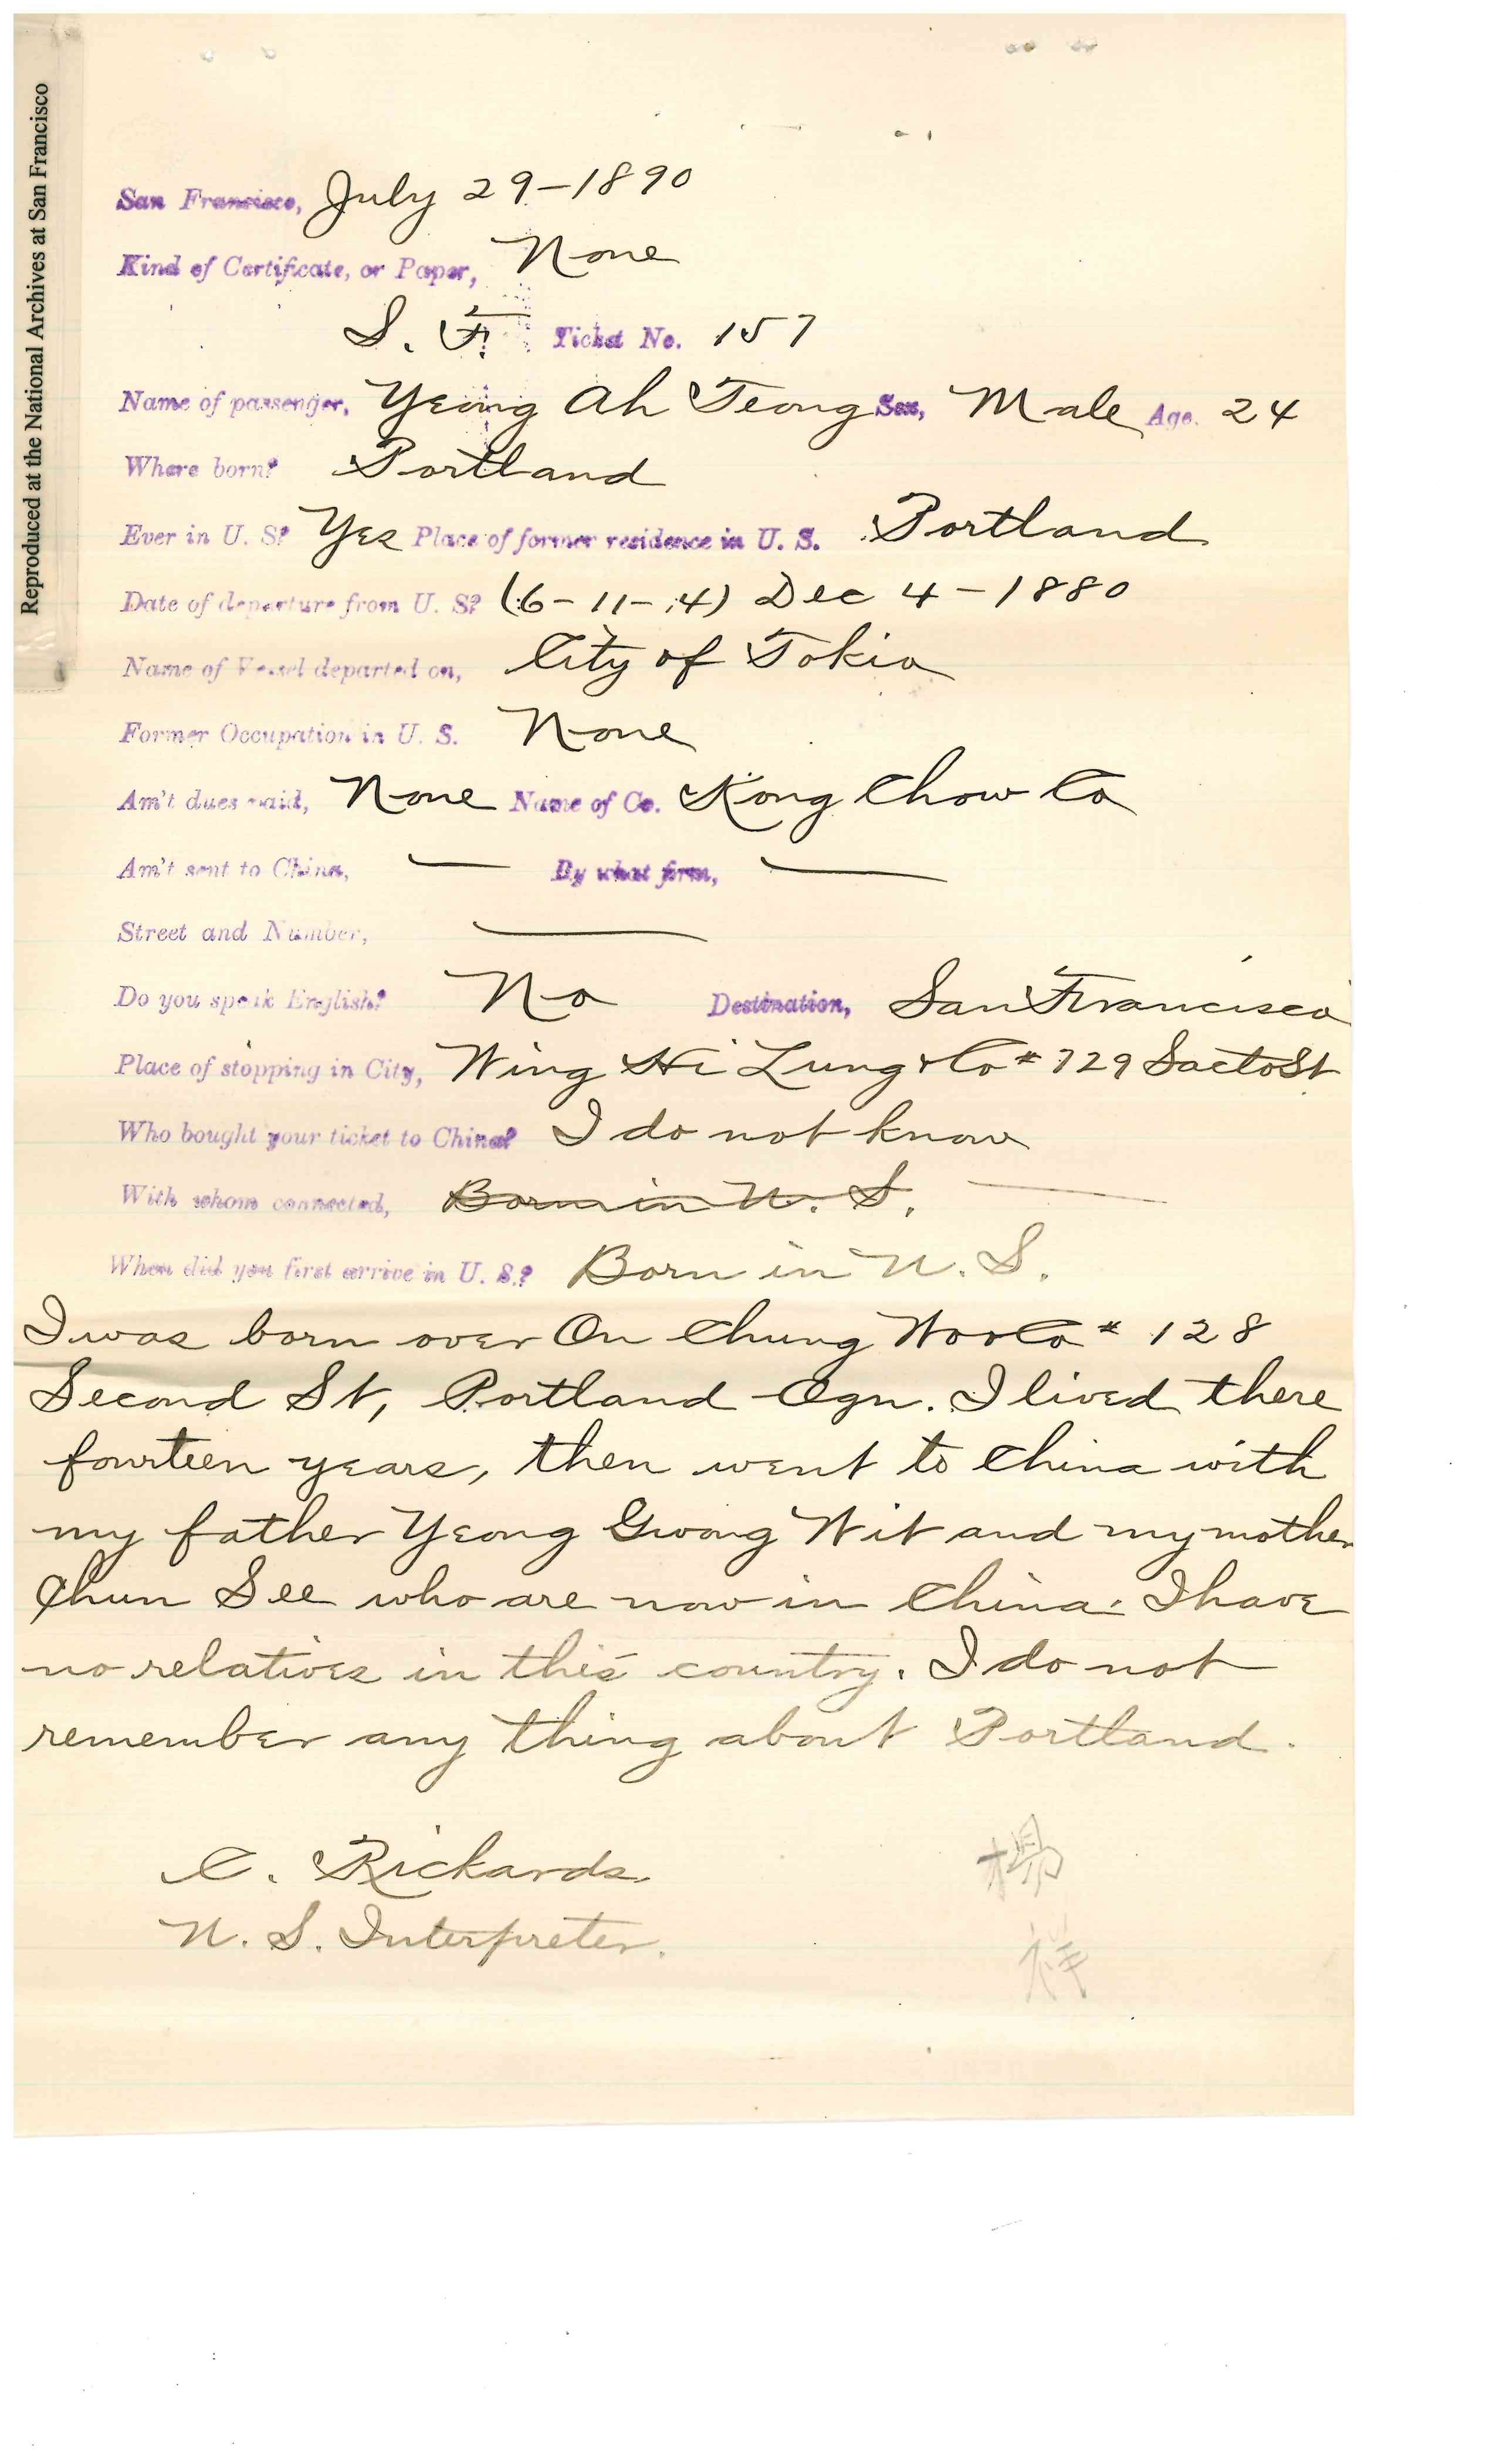 Reproduced at the National Archives at San Francisco
San Francisco, July 29-1890
Kind of Certificate, or Paper, None
S. F. Ticket No. 157
Name of passenger, Yeong Ah Teong Sex, Male Age. 24
Where born? Portland
Ever in U. S? Yes Place of former residence in U. S. Portland
Date of departure from U. S? (6-11-4) Dec 4-1880
Name of Vessel departed on, City of Tokio
Former Occupation in U. S. None
Am't dues paid, None Name of Co. Kong Chow Co
Am't sent to China, — By what firm, —
Street and Number, —
Do you speak English? No Destination, San Francisco
Place of stopping in City, Wing Hi Lung & Co # 729 Sacto St
Who bought your ticket to China? I do not know
With whom connected, Born in U. S. —
When did you first arrive in U. S.? Born in U. S.
I was born over On Chung Woo Co # 128
Second St, Portland Ogn. I lived there
fourteen years, then went to China with
my father Yeong Gwong Wit and my mother
Chun See who are now in China. I have
no relatives in this country. I do not
remember any thing about Portland.
C. Richards
U. S. Interpreter.
楊
祥